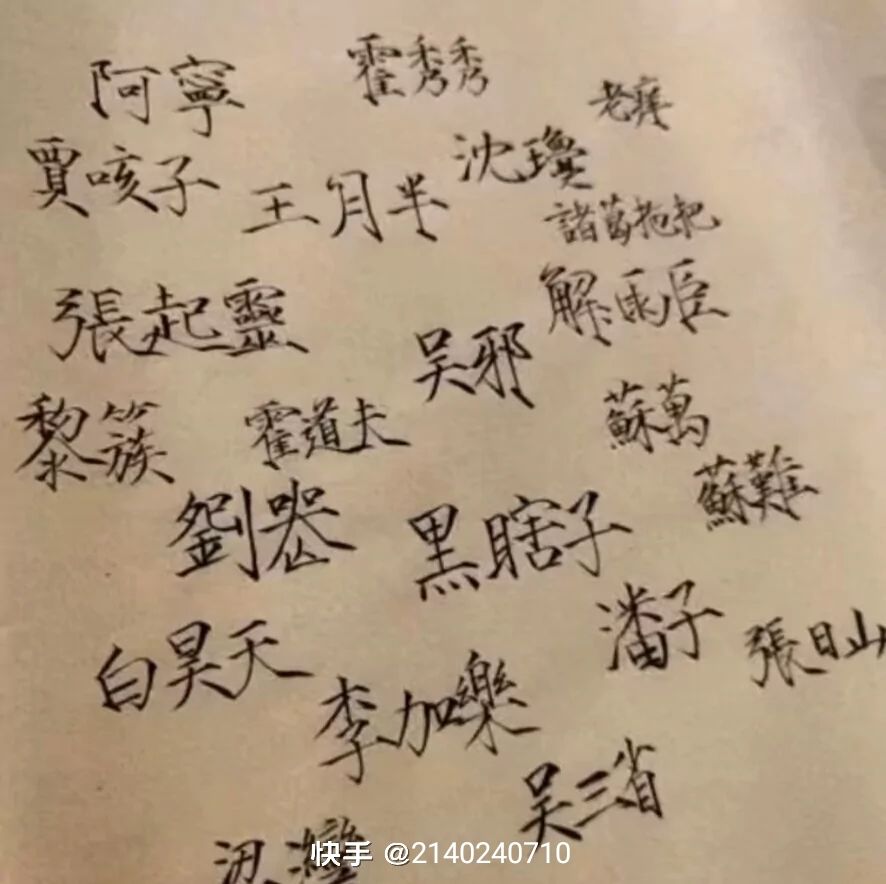 阿寧
霍秀秀
老癢
賈咳子
王月半
沈瓊
諸葛拖把
張起靈
吴邪
解雨臣
黎簇
霍道夫
蘇萬
蘇難
劉喪
黑瞎子
潘子
張日山
白昊天
李加樂
吴三省
快手 @2140240710